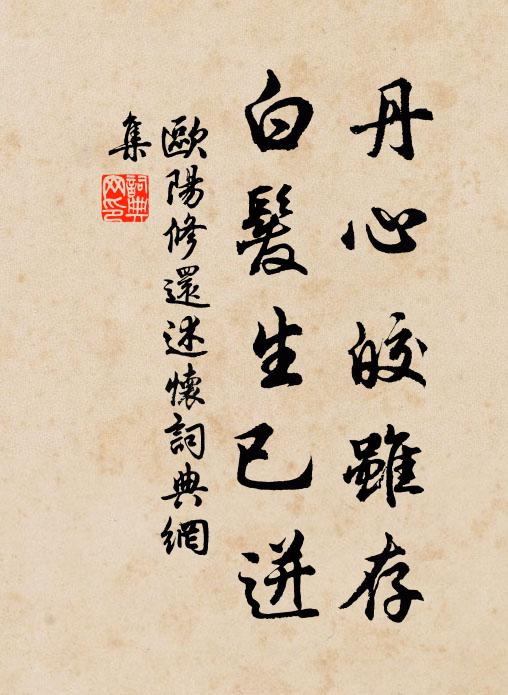 丹心皎雖存
白髮生已迸
歐陽修還述懷詞典網
集
詞典網印